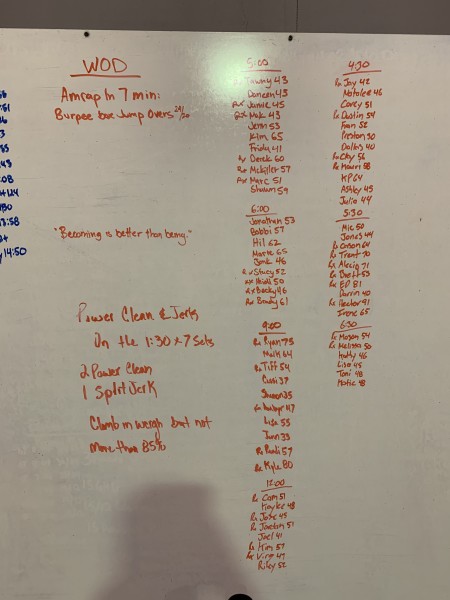 WOD
Amrap In 7 min:
Burpee box Jump Overs 24/20
"Becoming is better than being."
Power Clean & Jerks
On the 1:30 x 7 Sets
2 Power Clean
1 Split Jerk
Climb in weigh but not
more than 85%
5:00
Tawny 43
Doneen 43
Rx Jamie 45
Rx Mak 43
Jenn 53
Kim 65
Friday 41
Rx Derek 60
Rx McKiller 57
Rx Marc 51
Shawn 59
6:00
Jonathan 53
Bobbi 57
Hil 62
Marte 65
Jack 46
Rx Stacy 52
Rx Heidi 50
Rx Becky 46
Rx Brady 61
9:00
Rx Ryan 75
Malk 64
Rx Tiff 54
Cusi 37
Sharon 35
47
Lisa 55
Tunn 33
Rx Paul 57
Rx Kyle 80
12:00
Rx Cam 51
Kaylee 48
Rx Jose 45
Rx Jackson 51
Joel 41
Rx Kim 57
Rx Virg 47
Riley 52
4:30
Rx Jay 42
Natalee 46
Corey 51
Rx Dustin 54
Fran 52
Preston 30
Dallas 40
Rx Cky 56
Rx Mauri 58
KP 64
Ashley 45
Julia 44
5:30
Mic 50
Jones 44
Rx Omon 64
Rx Trent 70
Rx Alecia 71
Rx Brett 53
Rx ED 81
Darrin 40
Rx Hector 91
Irene 65
6:30
Rx Megan 54
Rx Melissa 50
Holly 46
Lisa 45
Toni 48
Katie 48
:51
:08
3:58
14:50